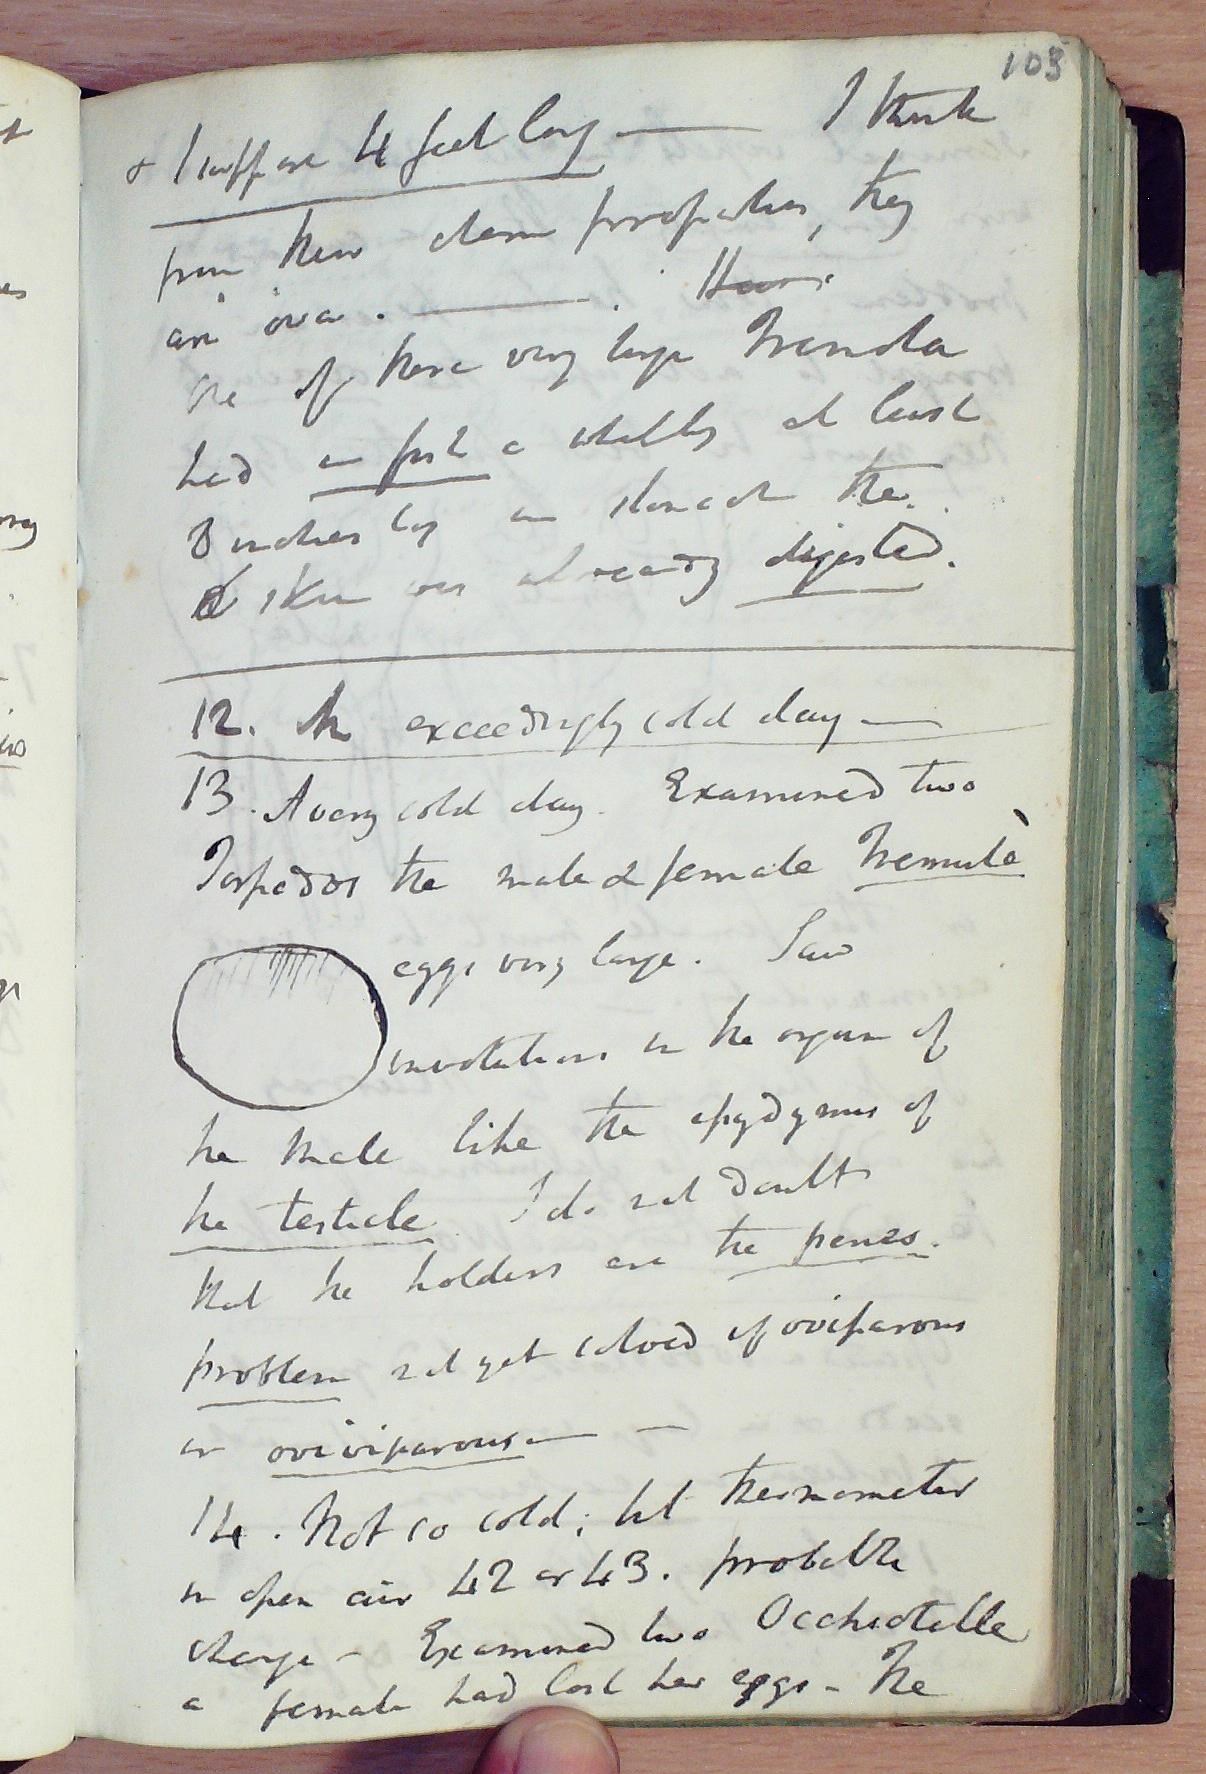 103
& I suppose 4 feet long — I think
from these  proportions, they
are ova. — . 
One of these very large Tremola
had in fish a whole at least
8 inches long in stomach the
skin was already digested.
12. An exceedingly cold day —
13. A very cold day. Examined two
Torpedos the male & female Tremule
eggs very large. Saw
involutions in the organ of
the male like the epydymus of
the testicle. I do not doubt
that the holders are the penes.
problem not yet solved if oviparous
or oviviparous — —
14. Not so cold; but thermometer
in open air 42 or 43. probable
change – Examined two Occhiatelle
a female had lost her eggs – The